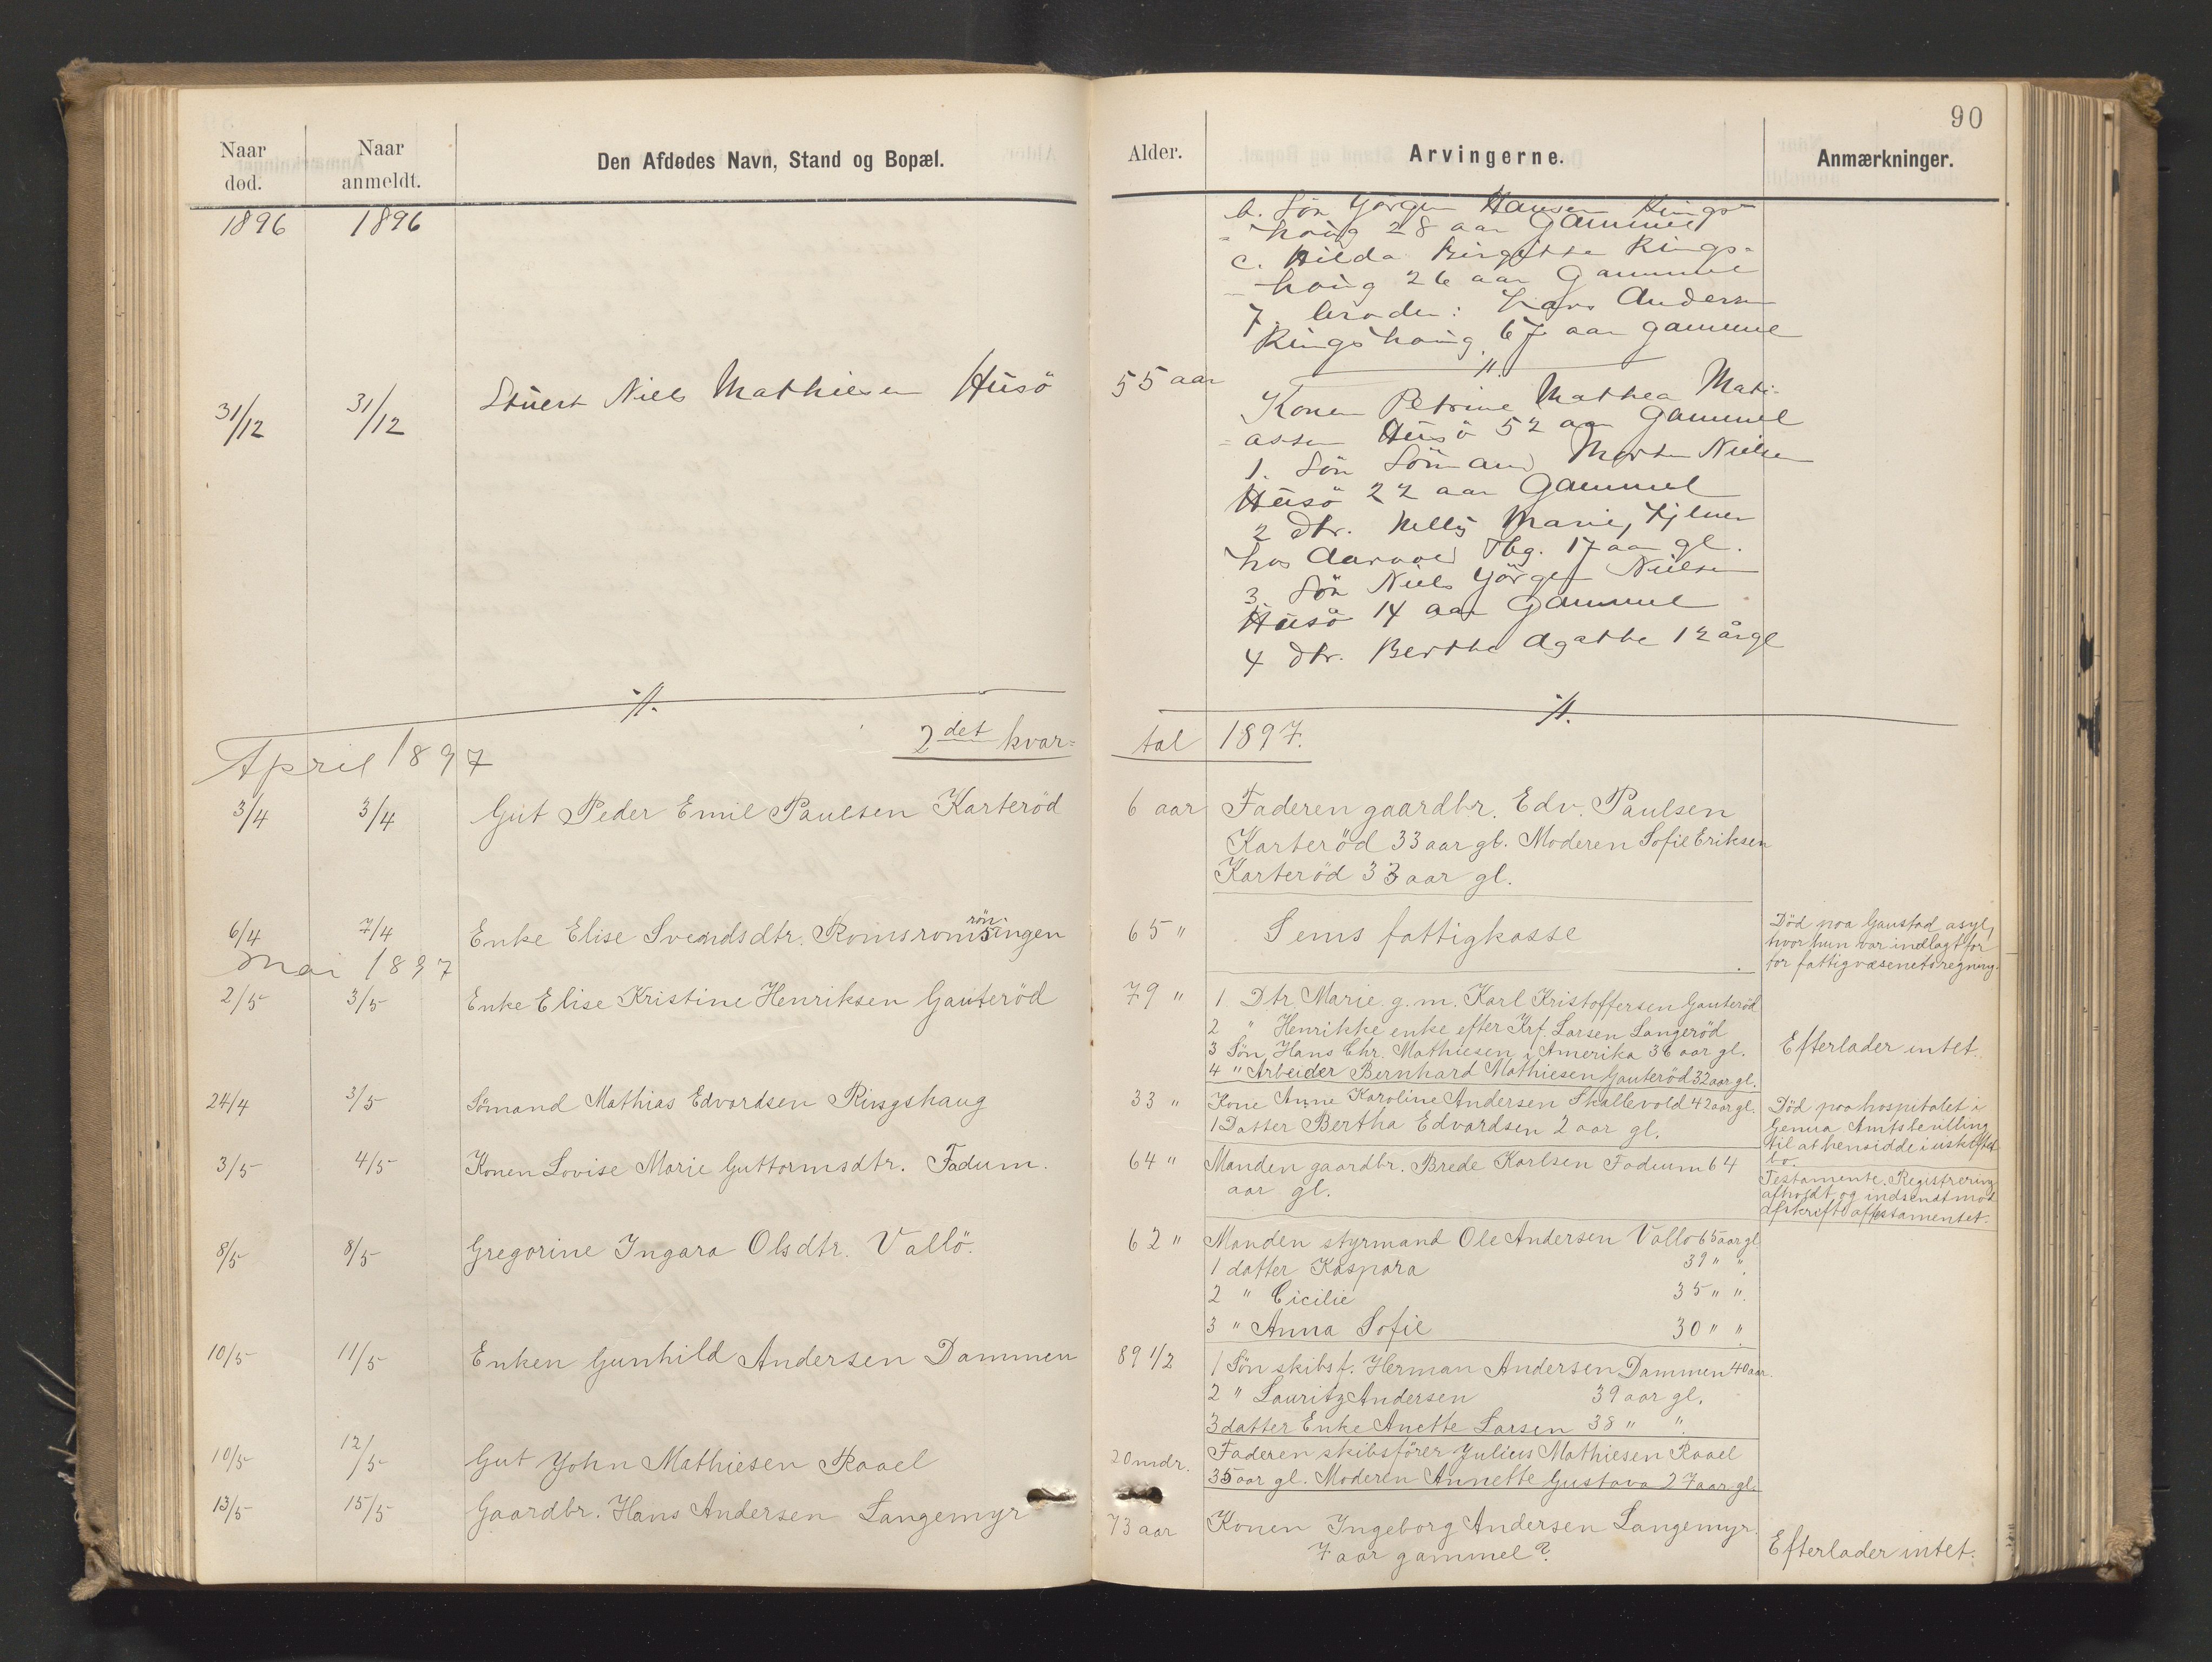 90
Naar død. Naar anmeldt. Den Afdødes Navn, Stand og Bopæl. Alder. Arvingerne. Anmærkninger.
1896 1896
b. Sön Görgen Hansen Rings-
-houg 28 aar Gammel
c. Hilda Birgitte Rings-
-houg 26 aar Gammel
7. broder: Lars Andersen
Ringshoug 67 aar gammel
31/12 31/12 Stuert Niels Mathiesen Husö 55 aar
Konen Petrine Mathea Mati-
-assen Husö 52 aar Gammel
1. Sön Sömand Morten Nielsen
Husö 22 aar Gammel
2 Dtr. Nelly Marie, tjener
hos Aarvold Tbg. 17 aar gl.
3. Sön Niels Görgen Nielsen
Husö 14 aar Gammel
4 Dtr. Berthe Agathe 12 år gl
2det kvar= tal 1897.
April 1897
3/4 3/4 Gut Peder Emil Paulsen Karteröd 6 aar Faderen gaardbr. Edv. Paulsen
Karteröd 33 aar gl. Moderen Sofie Eriksen
Karteröd 33 aar gl.
6/4 7/4 Enke Elise Svendsdtr. 65 " Sems fattigkasse
Död paa Gaustad asyl,
hvor hun var indlagt for
for fattigvæsenets regning.
Mai 1897
2/5 3/5 Enke Elise Kristine Henriksen Gauteröd 79 " 1 Dtr. Marie g. m. Karl Kristoffersen Gauteröd
2 " Henrikke enke efter Krf. Larsen Langeröd
3 Sön Hans Chr. Mathiesen i Amerika 36 aar gl.
4 " Arbeider Bernhard Mathiesen Gauteröd 32 aar gl.
Efterlader intet.
24/4 3/5 Sömand Mathias Edvardsen Ringshaug 33 " Kone Anne Karoline Andersen Skallevold 42 aar gl.
1 Datter Bertha Edvardsen 2 aar gl.
Död paa hospitalet i
Genua. Amtsbevilling
til at hensidde i uskiftet
bo.
3/5 4/5 Konen Lovise Marie Guttormsdtr. Fadum. 64 " Manden gaardbr. Brede Karlsen Fadum 64
aar gl.
Testamente. Registrering
afholdt og indsendt med
afskrift af testamentet.
8/5 8/5 Gregorine Ingara Olsdtr. Vallö. 62 " Manden styrmand Ole Andersen Vallö 65 aar gl
1 datter Kaspara 39 " "
2 " Cicilie 35 " "
3 " Anna Sofie 30 " "
10/5 11/5 Enken Gunhild Andersen Dammen 89 1/2 1 Sön skibsf. Herman Andersen Dammen 40 aar.
2 " Lauritz Andersen 39 aar gl.
3 datter Enke Anette Larsen 38 " "
10/5 12/5 Gut John Mathiesen Raael 20 mdr. Faderen skibsförer Julius Mathiesen Raael
35 aar gl. Moderen Annette Gustava 27 aar gl.
13/5 15/5 Gaardbr. Hans Andersen Langemyr 73 aar Konen Ingeborg Andersen Langemyr.
7 aar gammel?
Efterlader intet.